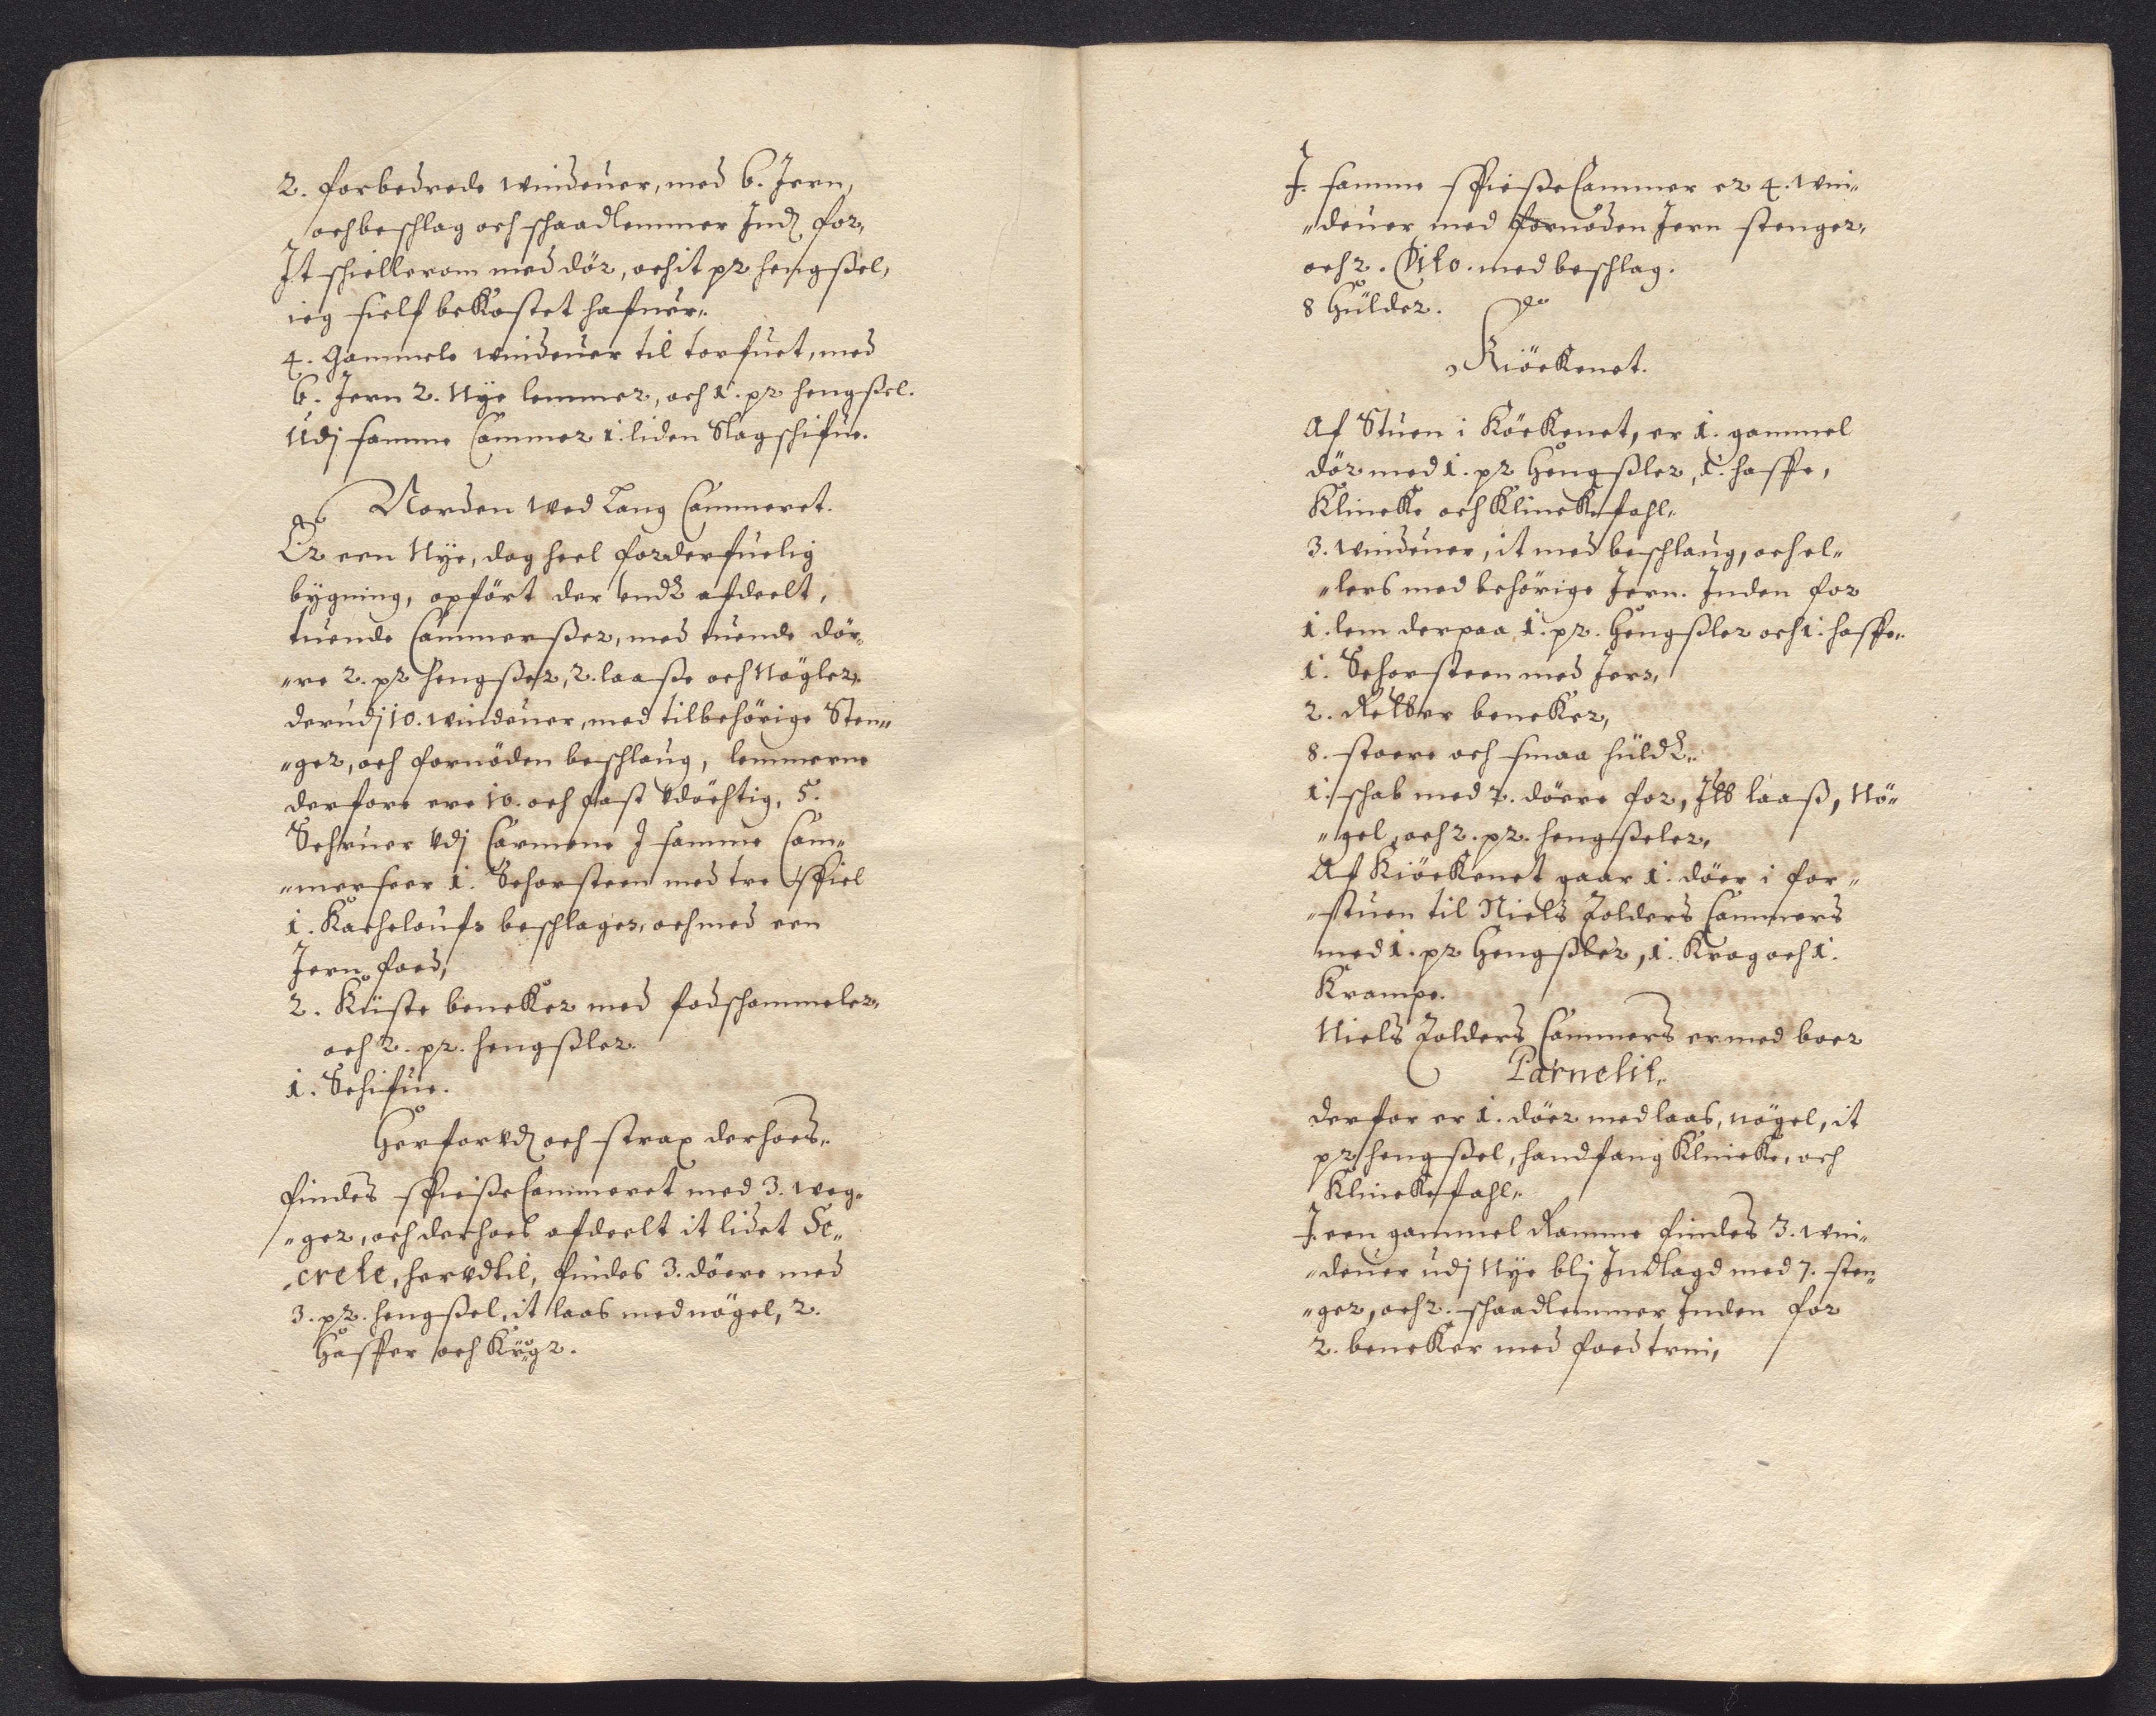 2. forbedrede windeuer, med 6. Jern,
och beschlag och schaadlemmer Ind for,
It schiellerom med dör, och it pr hengßel,
ieg sielf bekostet hafuer,.
4. Gammele windeuer til torfuet, med
6. Jern 2. Nye lemmer, och 1. pr hengßel.
Udj samme Cammer 1. liden Slagschifue.
Norden wed Lang Cammeret.
Er een Nye, dog heel forderfuelig
bygning, opfört der end afdeelt,
tuende Cammerßer, med tuende dör„
„re 2. pr hengßer, 2. laaße och Nögler,
derudj 10. windeuer, med tilbehörige Sten„
„ger, och fornöden beschlaug, lemmerne
derfore ere 10. och fast vdöchtig, 5.
Schruer vdj Carmene J samme Cam„
„merseer 1. Schorsteen med tre spiel
1. Kacheloufs beschlager, och med een
Jern foed,
2. Küste bencker med fodschammeler,
och 2. pr. hengßler.
1. Schifue.
Herforvd och strax derhoes,.
findes spießeCammeret med 3. weg„
„ger, och derhoes afdeelt it lidet Se„
„crete, hervdtil, findes 3. döere med
3. pr. hengßel, it laas med nögel, 2.
Hasper och Kröger.
J. samme spießeCammer er 4. win„
„deuer med fornöden Jern stenger,
och 2. Dito. med beschlag.
8 Hülder.
Kiöckenet.
Af Stuen i Köckenet, er 1. gammel
dör med 1. pr Hengßler, 1. haspe,
Klincke och Klinckefahl,.
3. windeuer, it med beschlaug, och el„
„lers med behörige Jern. Inden for
1. lem derpaa 1. pr. Hengßler och 1. haspe,.
1. Schorsteen med Jern,
2. bencker,
8. stoere och smaa hüld,.
1. schab med 2. döere for, It laaß, Nö„
„gel, och 2. pr. hengßeler,
Af Kiöckenet gaar 1. döer i for„
„stuen til Niels Zolders Cammers
med 1. pr Hengßler, 1. Krog och 1.
Krampe.
Niels Zolders Cammers er med boer
Parnelit,.
derfor er 1. döer med laas, nögel, it
pr hengßel, handfang Klincke, och
Klinckefahl,.
J. een gammel Ramme findes 3. win„
„deuer udj Nye blj Indlagd med 7. sten„
„ger, och 2. schaadlemmer Inden for
2. bencker med foed trin,